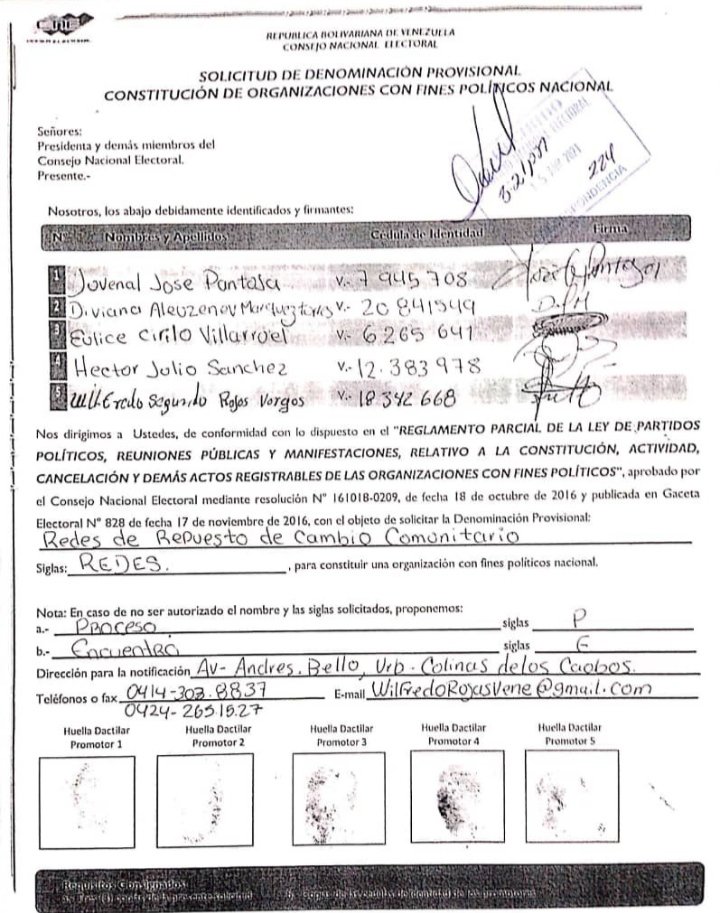 CNE
REPÚBLICA BOLIVARIANA DE VENEZUELA
CONSEJO NACIONAL ELECTORAL
SOLICITUD DE DENOMINACIÓN PROVISIONAL
CONSTITUCIÓN DE ORGANIZACIONES CON FINES POLÍTICOS NACIONAL
Señores:
Presidenta y demás miembros del
Consejo Nacional Electoral.
Presente.-
3:21pm
224
Nosotros, los abajo debidamente identificados y firmantes:
Nº Nombres y Apellidos Cedula de Identidad Firma
1 Juvenal Jose Pantoja V.- 7 945 708
2 Diviana Aleuzenov Marquez torres V.- 20 841549
3 Eulice Cirilo Villarroel V.- 6.265 641
4 Hector Julio Sanchez V.- 12.383 978
5 Wilfredo Segundo Rojas Vargas V.- 18 342 668
Nos dirigimos a Ustedes, de conformidad con lo dispuesto en el "REGLAMENTO PARCIAL DE LA LEY DE PARTIDOS
POLÍTICOS, REUNIONES PÚBLICAS Y MANIFESTACIONES, RELATIVO A LA CONSTITUCIÓN, ACTIVIDAD,
CANCELACIÓN Y DEMÁS ACTOS REGISTRABLES DE LAS ORGANIZACIONES CON FINES POLÍTICOS", aprobado por
el Consejo Nacional Electoral mediante resolución Nº 161018-0209, de fecha 18 de octubre de 2016 y publicada en Gaceta
Electoral Nº 828 de fecha 17 de noviembre de 2016, con el objeto de solicitar la Denominación Provisional:
Redes de Repuesto de Cambio Comunitario
Siglas: REDES. , para constituir una organización con fines políticos nacional.
Nota: En caso de no ser autorizado el nombre y las siglas solicitados, proponemos:
a.- Proceso siglas P
b.- Encuentro siglas E
Dirección para la notificación Av- Andres. Bello, Urb. Colinas de los Caobos.
Teléfonos o fax 0414-303.8837 E-mail WilfredoRojasVene@gmail.com
0424-265.15.27
Huella Dactilar Huella Dactilar Huella Dactilar Huella Dactilar Huella Dactilar
Promotor 1 Promotor 2 Promotor 3 Promotor 4 Promotor 5
Requisitos Consignados:
a.- Tres (3) copias de la presente solicitud b.- Copias de las cedulas de identidad de los promotores